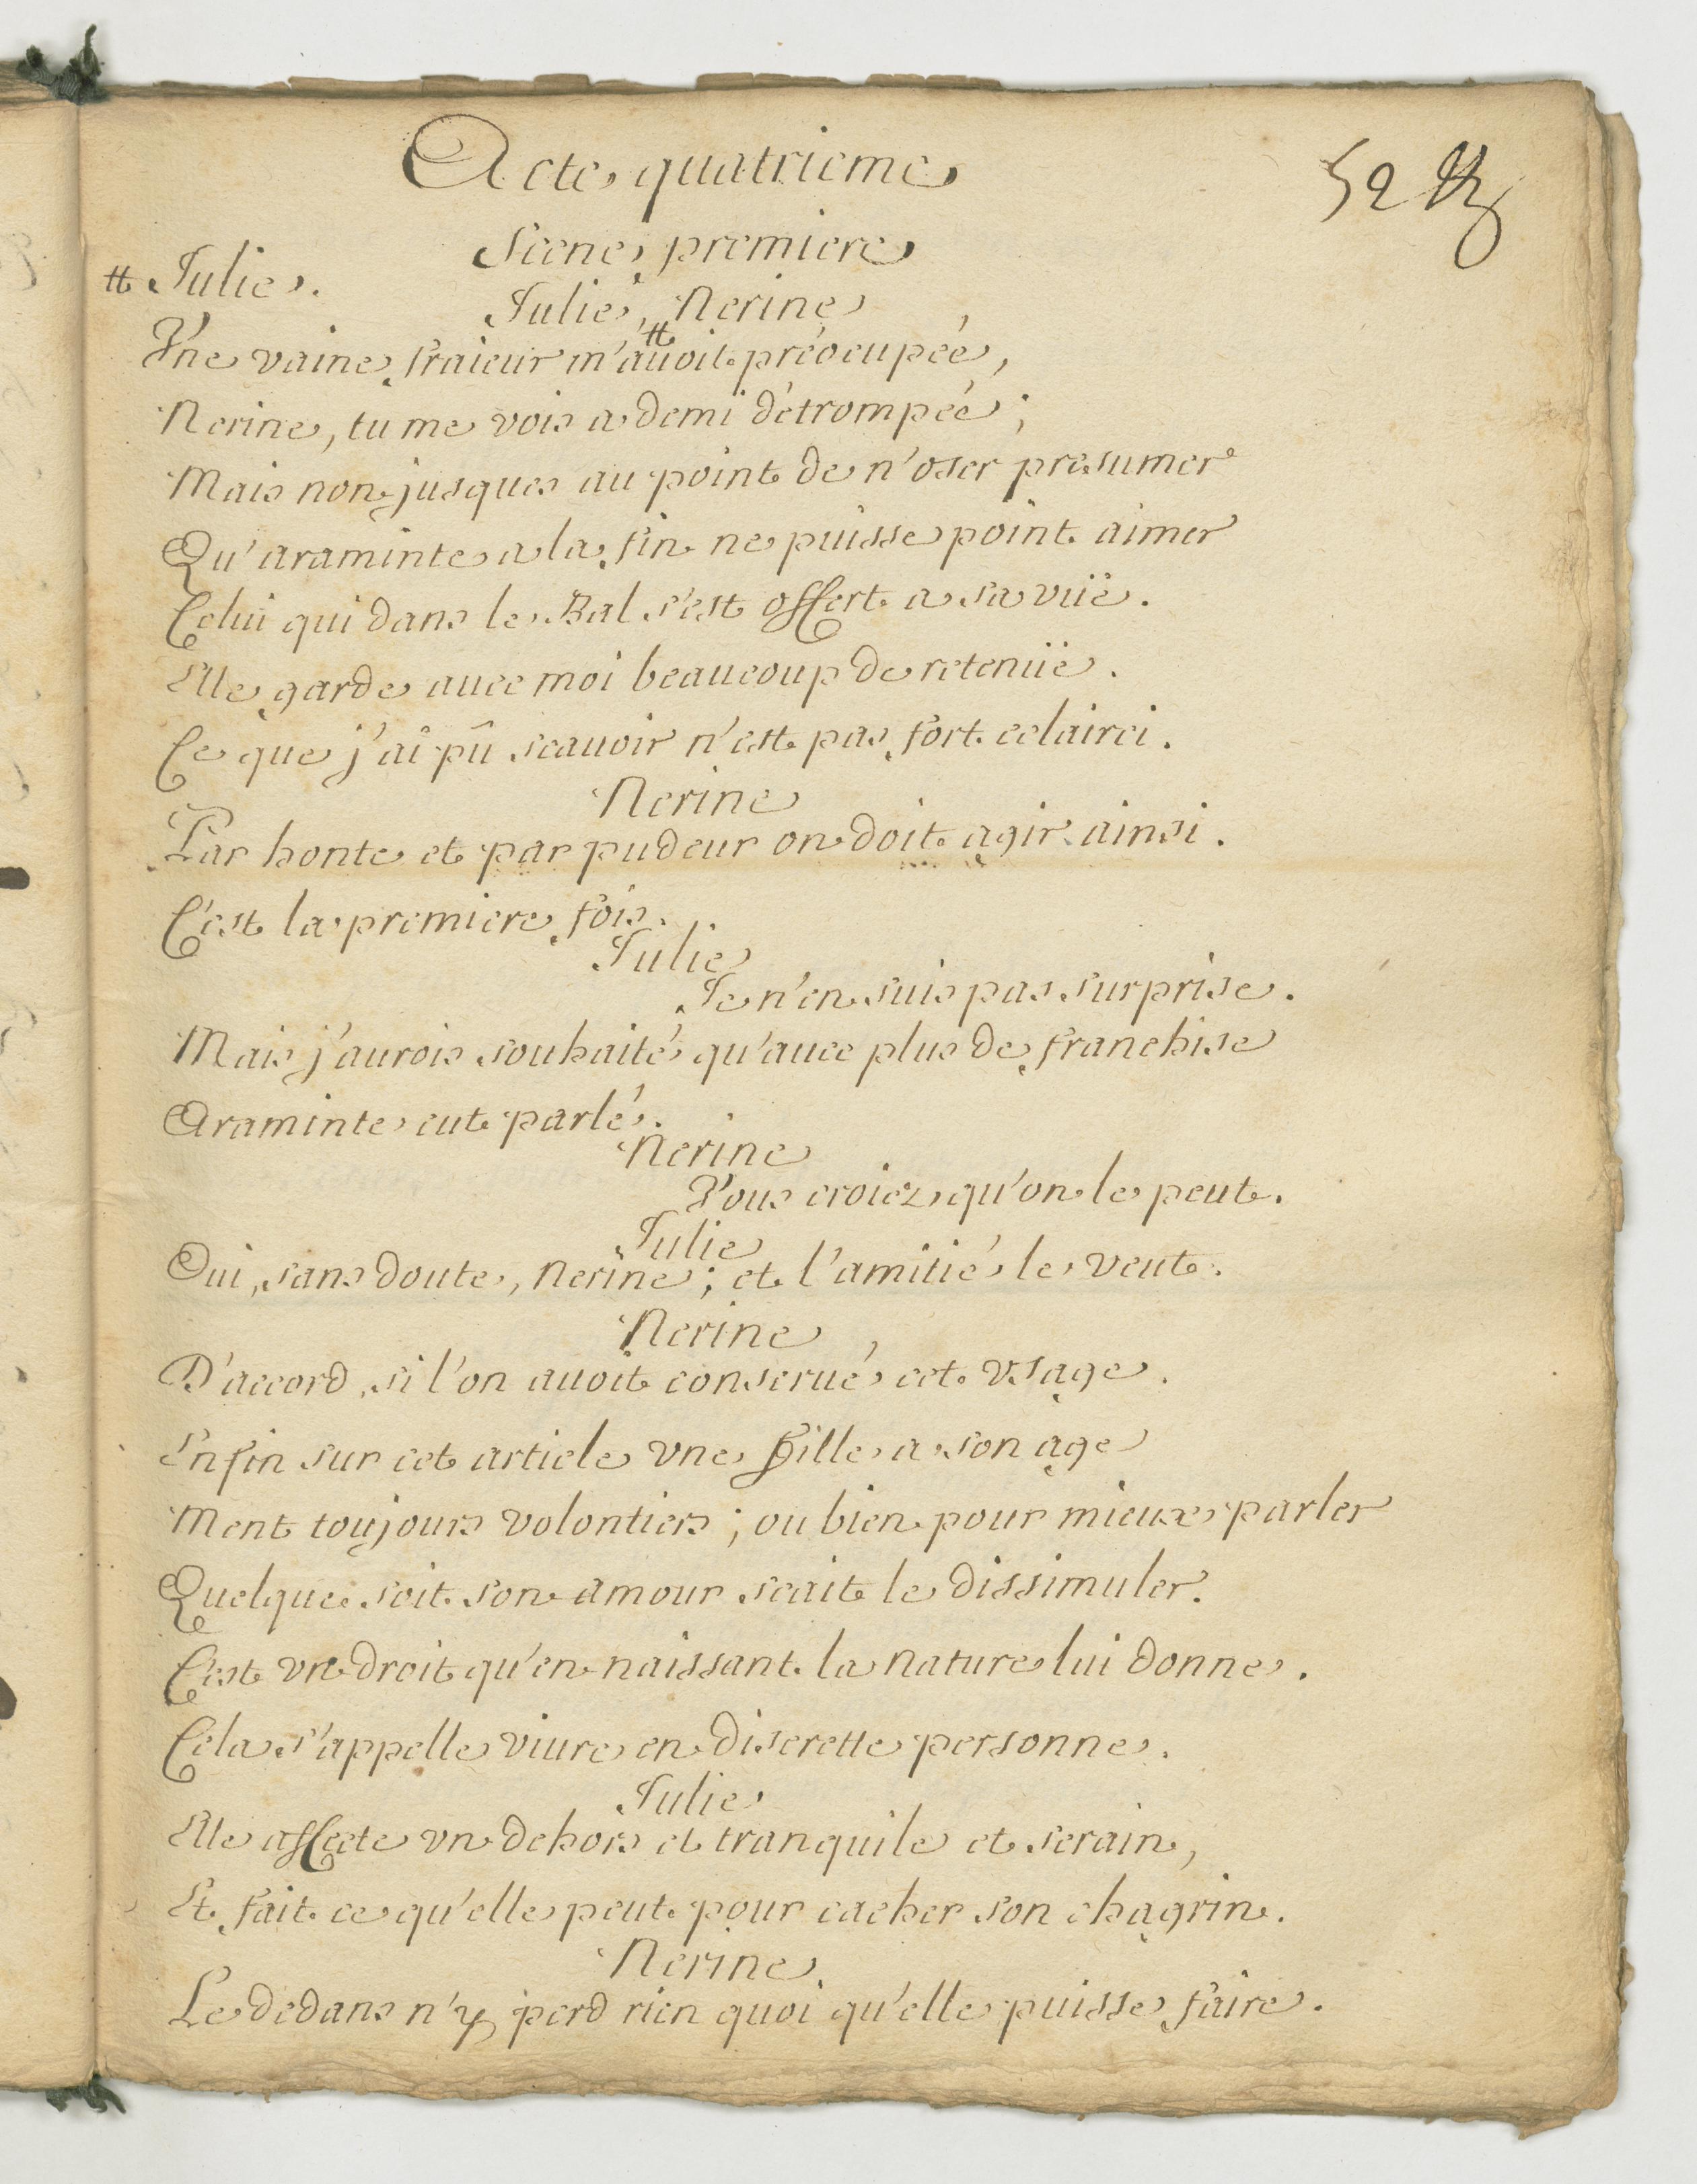 Acte quatrieme
52
Scene premiere
tt Julie.
Julie, Nerine
tt
Vne vaine fraieur m'auoit préocupée,
Nerine, tu me vois a demi détrompée;
Mais non jusques au point de n'oser presumer
Qu'araminte a la fin ne puisse point aimer
Celui qui dans le Bal s'est offert a sa vuë.
Elle garde auec moi beaucoup de retenuë.
Ce que j'ai pû scauoir n'est pas fort eclairci.
Nerine
Par honte et par pudeur on doit agir ainsi.
C'est la premiere fois.
Julie
Je n'en suis pas surprise.
Mais j'aurois souhaité qu'auec plus de franchise
Araminte eut parlé.
Nerine
Vous croiez qu'on le peut.
Julie
Oui, sans doute, Nerine; et l'amitié le veut.
Nerine
D'accord, si l'on auoit conserué cet vsage.
Enfin sur cet article vne fille a son age
Ment toujours volontiers; ou bien pour mieux parler
Quelque soit son amour scait le dissimuler.
C'est vn droit qu'en naissant la nature lui donne.
Cela s'appelle viure en discrette personne.
Julie
Elle affecte vn dehors et tranquile et serain,
Et fait ce qu'elle peut pour cacher son chagrin.
Nerine
Le dedans n'y perd rien quoi qu'elle puisse faire.